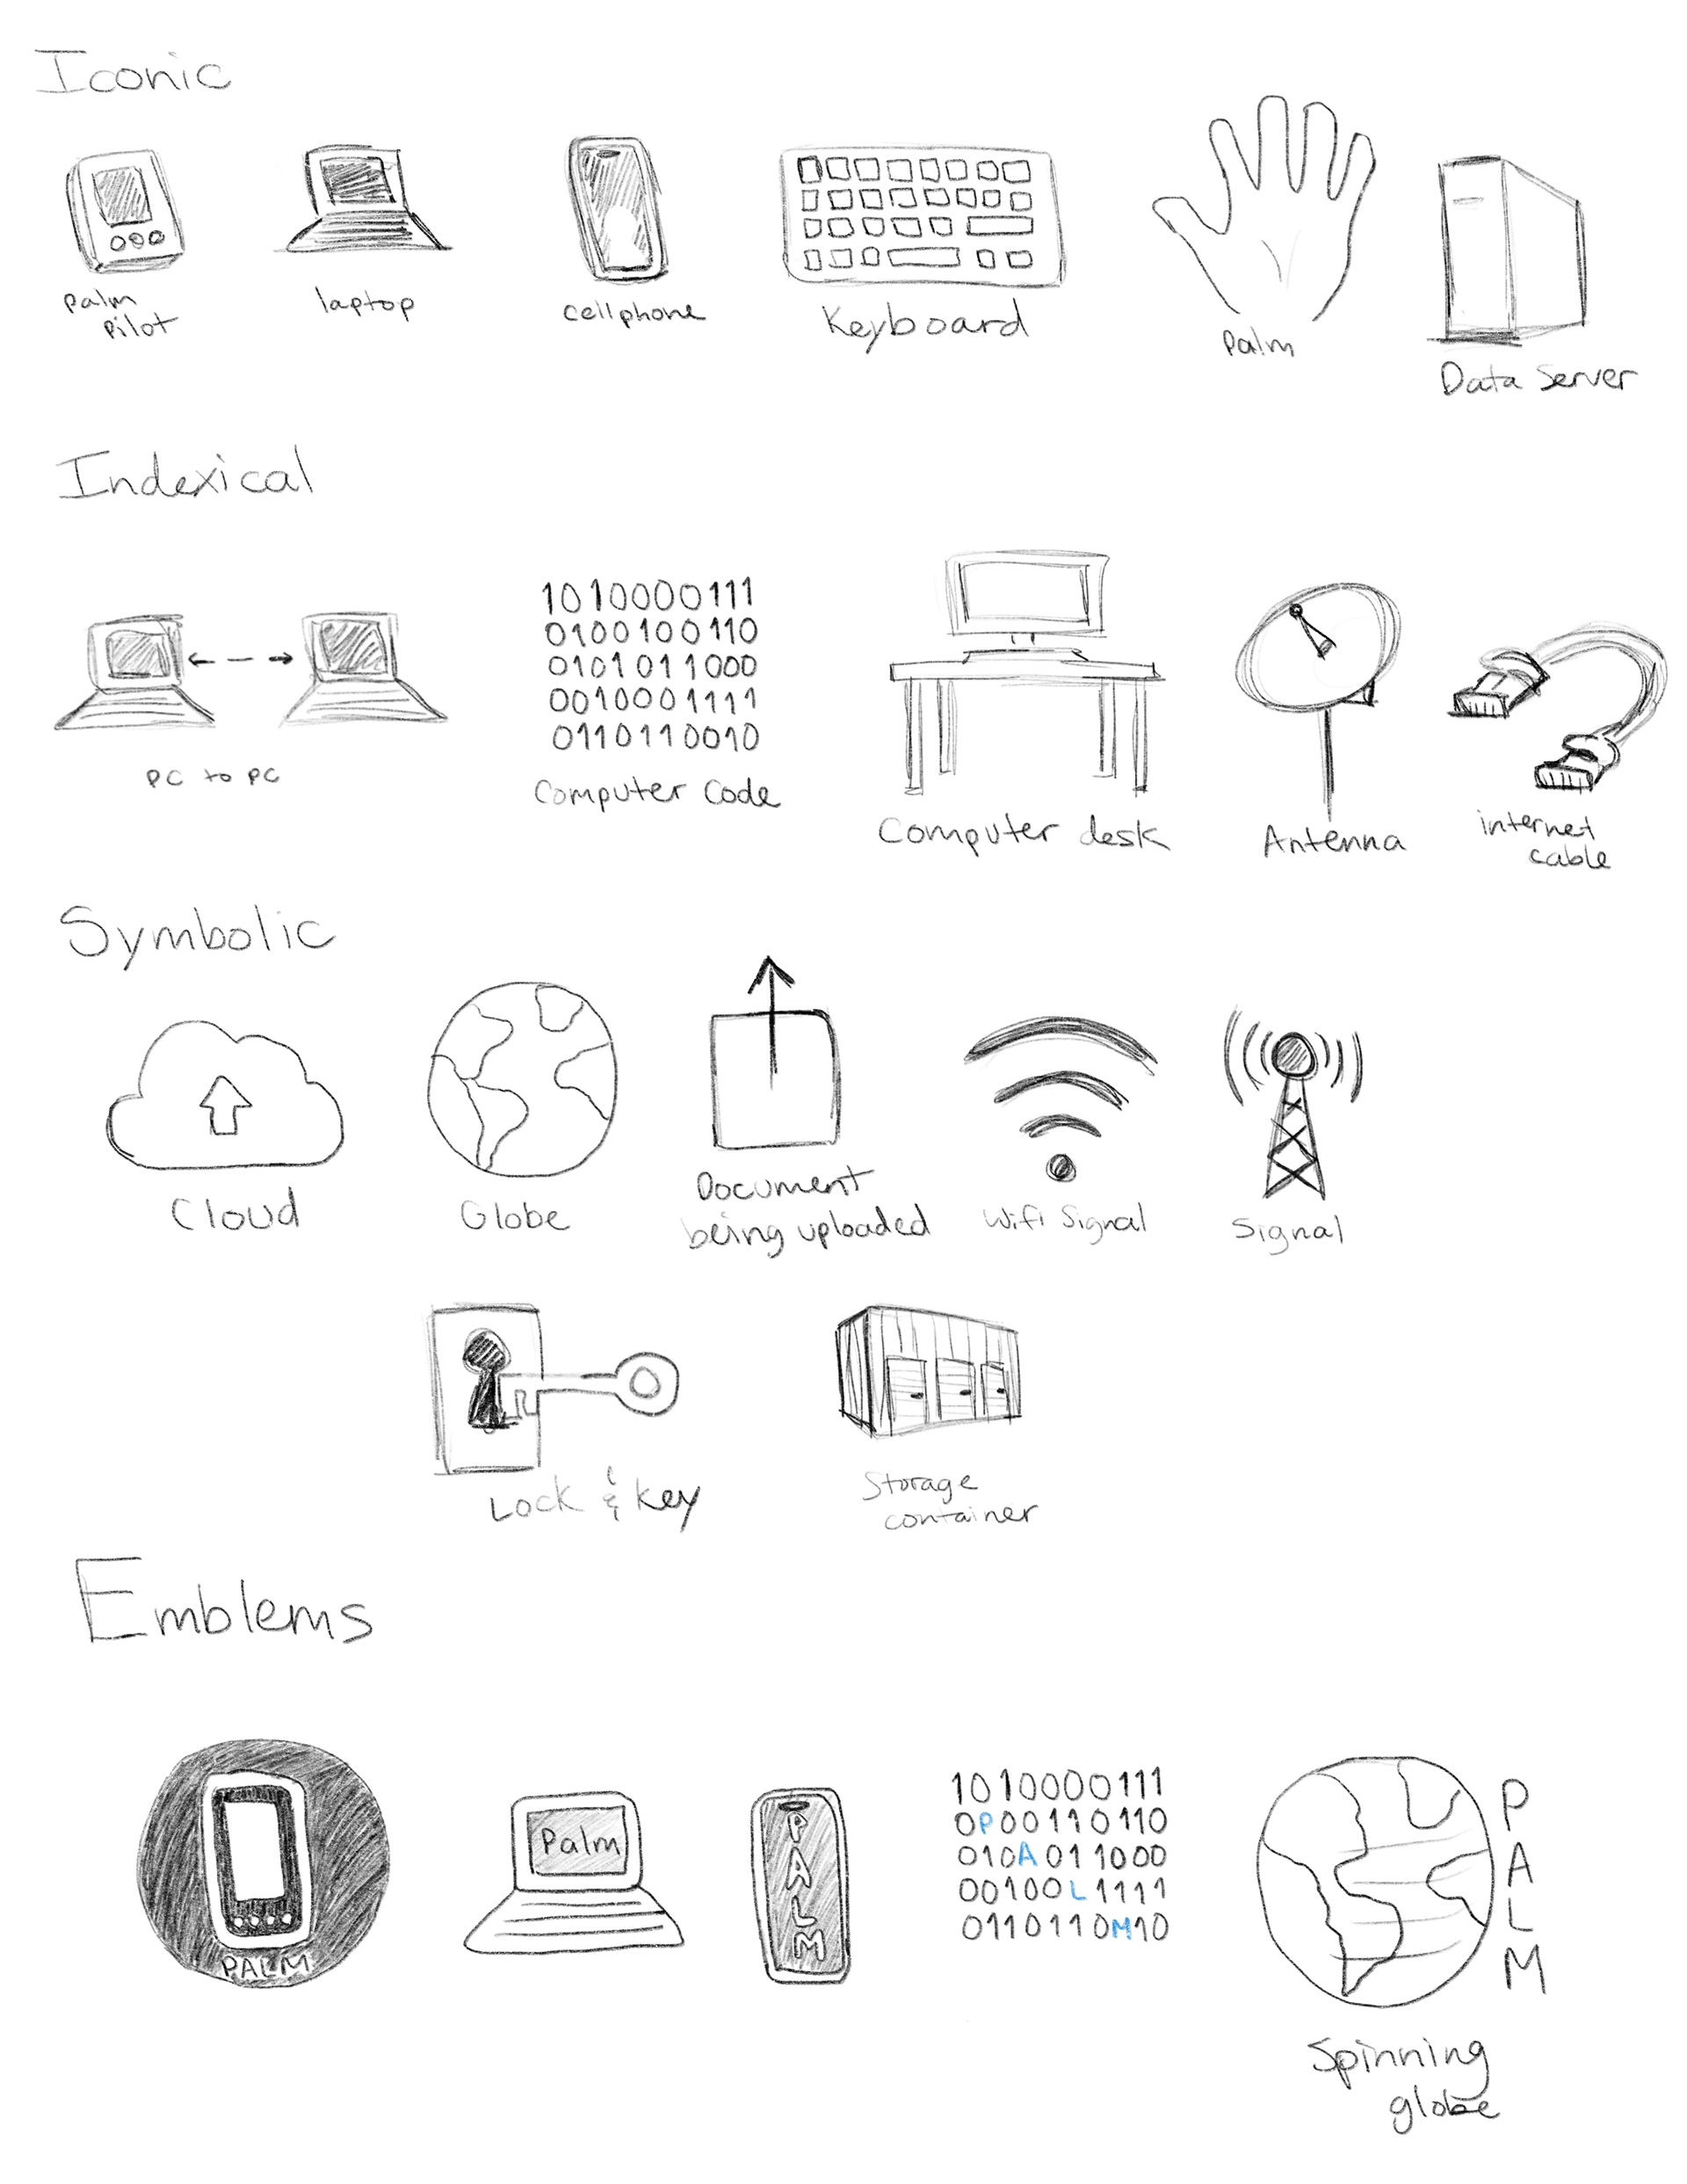 Iconic
palm
pilot
laptop
cellphone
Keyboard
palm
Data Server
Indexical
1010000111
0100100110
0101011000
0010001111
0110110010
PC to PC
Computer Code
Computer desk
Antenna
internet
cable
Symbolic
Cloud
Globe
Document
being uploaded
Wifi Signal
Signal
Lock & key
Storage
container
Emblems
PALM
Palm
PALM
1010000111
0P00110110
010A011000
00100L1111
0110110M10
PALM
Spinning
globe